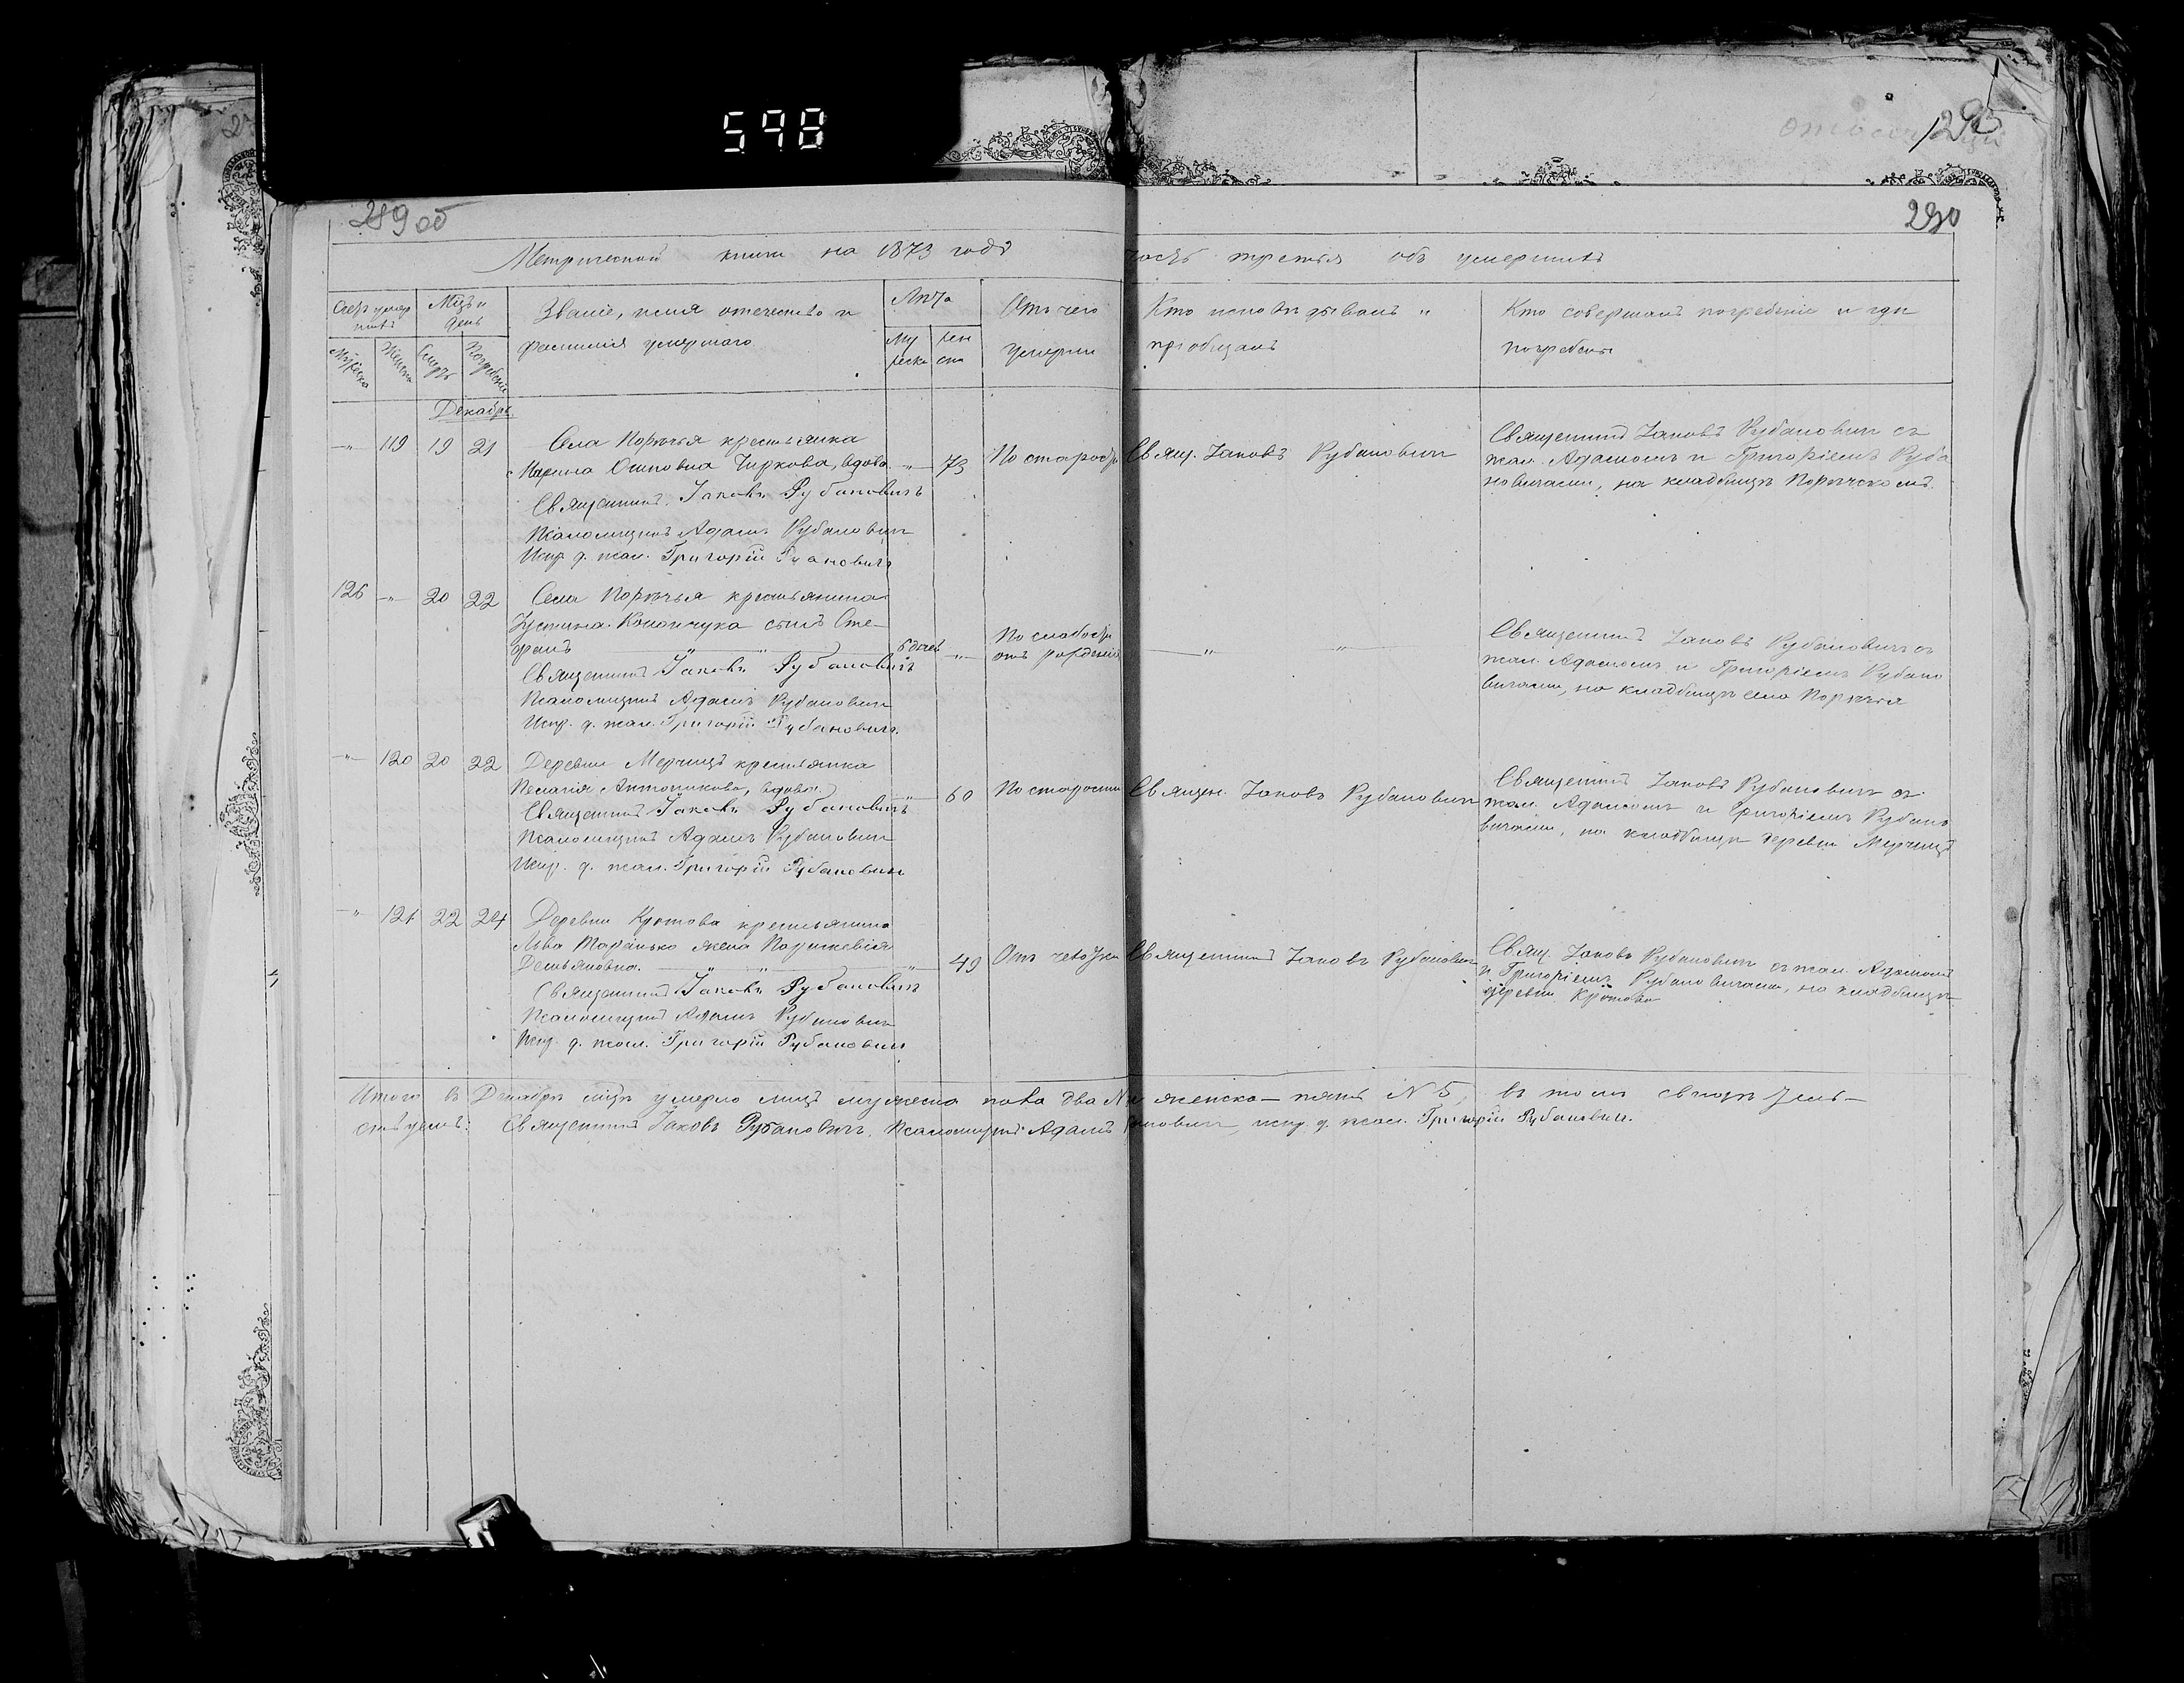 598
289 об
290
Метрической книги на 1873 годъ часть третья объ умершихъ
Счетъ умершихъ
Мужеска
Женска
Мѣц. и день
Смерти
Погребенія
Званіе, имя отечество и
фамилія умершаго
Лѣта
Му
жеска
жен
ска
Отъ чего
умерли
Кто исповѣдывалъ и
пріобщалъ
Кто совершалъ погребеніе и гдѣ
погребены
Декабрь
-„- 119 19 21
Села Порѣчья крестьянка
Марина Осиповна Чиркова, вдова -„- 73
По старости
Свящ. Іаковъ Рубановичъ
Священникъ Іаковъ Рубановичъ съ
псал. Адамомъ и Григоріемъ Руба
новичами, на кладбищѣ Порѣчскомъ.
Священникъ Іаковъ Рубановичъ
Псаломщикъ Адамъ Рубановичъ
Испр. д. псал. Григорій Рубановичъ
126 -„- 20 22
Села Порѣчья крестьянина
Іустина Конончука сынъ Сте-
фанъ -„- -„-
По слабости
отъ рожденія
-„- -„-
Священникъ Іаковъ Рубановичъ съ
псал. Адамомъ и Григоріемъ Рубано
вичами, на кладбищѣ села Порѣчья
Священникъ Іаковъ Рубановичъ
Псаломщикъ Адамъ Рубановичъ
Испр. д. псал. Григорій Рубановичъ.
-„- 120 20 22
Деревни Мерчицъ крестьянка
Пелагія Антоникова, вдова -„- 60
По старости
Священ. Іаковъ Рубановичъ
Священникъ Іаковъ Рубановичъ съ
псал. Адамомъ и Григоріемъ Рубано
вичами, на кладбищѣ деревни Мерчицъ
Священникъ Іаковъ Рубановичъ
Псаломщикъ Адамъ Рубановичъ
Испр. д. псал. Григорій Рубановичъ
-„- 121 22 24
Деревни Кротова крестьянина
Льва жена
Демьяновна. -„- -„- -„- 49
Отъ чахотки
Священникъ Іаковъ Рубановичъ
Свящ. Іаковъ Рубановичъ съ псал. Адамомъ
и Григоріемъ Рубановичами, на кладбищѣ
деревни Кротова
Священникъ Іаковъ Рубановичъ
Псаломщикъ Адамъ Рубановичъ
Испр. д. псал. Григорій Рубановичъ
Итого въ Декабрѣ мѣцѣ умерло лицъ мужеска пола два женска — пять № 5, въ томъ
Священникъ Іаковъ Рубановичъ. Псаломщикъ Адамъ испр. д. псал. Григорій Рубановичъ.